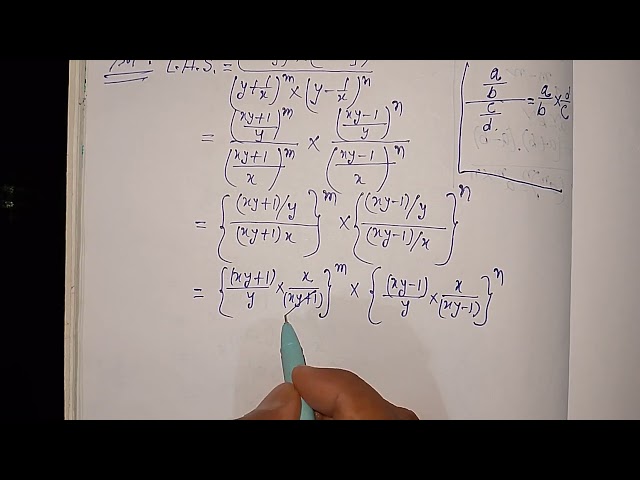 L.H.S. =
(y+1/x)^m × (y-1/x)^n
= ((xy+1)/y)^m / ((xy+1)/x)^m × ((xy-1)/y)^n / ((xy-1)/x)^n
= {(xy+1)/y / (xy+1)x}^m × {(xy-1)/y / (xy-1)/x}^n
= {(xy+1)/y × x/(xy+1)}^m × {(xy-1)/y × x/(xy-1)}^n
a/b / c/d. = a/b × d/c